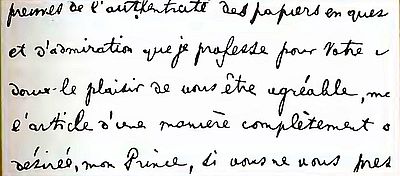 preuves de l'authenticité des papiers en ques
et d'admiration que je professe pour Votre
le plaisir de vous être agréable,
l'article d'une manière complètement
désirée, mon Prince, si vous ne vous pres